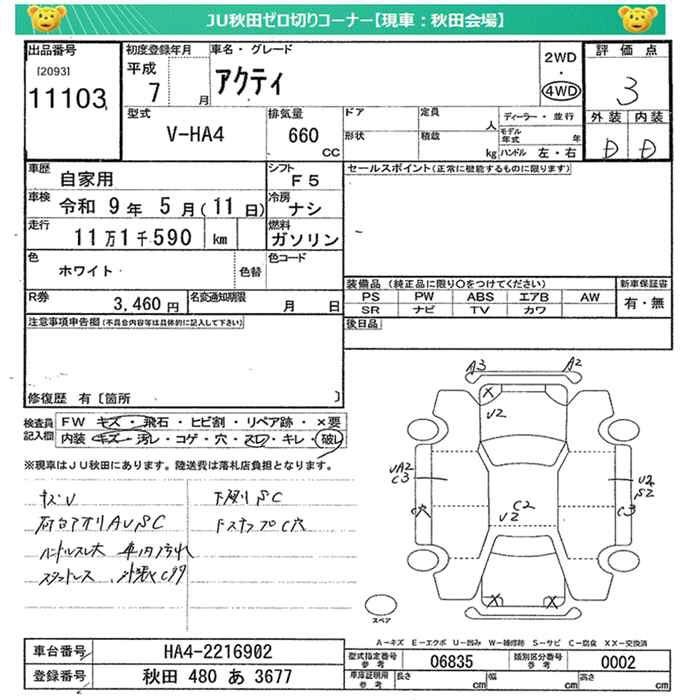 JU秋田ゼロ切りコーナー【現車：秋田会場】
出品番号 初度登録年月 車名・グレード 評価点
[2093] 平成 アクティ 2WD
11103 7 月 ・ 3
4WD
型式 排気量 ドア 定員 人 ディーラー・並行 外装 内装
V-HA4 660 cc 形状 積載 kg モデル年式 年 D D
ハンドル 左・右
車歴 自家用 シフト F5 セールスポイント(正常に機能するものに限ります)
車検 令和 9年 5月(11日) 冷房 ナシ
走行 11万1千590 km 燃料 ガソリン
色 ホワイト 色替 色コード
装備品 (純正品に限り○をつけてください) 新車保証書
R券 3,460円 名変通知期限 月 日 PS PW ABS エアB AW 有・無
SR ナビ TV カワ
注意事項申告欄(不具合内容等は具体的に記入して下さい) 後日品
修復歴 有〔箇所 〕
検査員 FW キズ・飛石・ヒビ割・リペア跡・×要
記入欄 内装 キズ・汚レ・コゲ・穴・スレ・キレ・破レ
※現車はJU秋田にあります。陸送費は落札店負担となります。
キズU 下廻りSC
ハンドルスレ大 車内汚れ
A3 A2
X U2
UA2 U2
C3 S2
C穴 C2 C3
U2
X X
スペア
A-キズ E-エクボ U-凹み W-補修跡 S-サビ C-腐食 XX-交換済
車台番号 HA4-2216902 型式指定番号 参考 06835 類別区分番号 参考 0002
登録番号 秋田 480 あ 3677 車庫証明用 参考 長さ cm 幅 cm 高さ cm